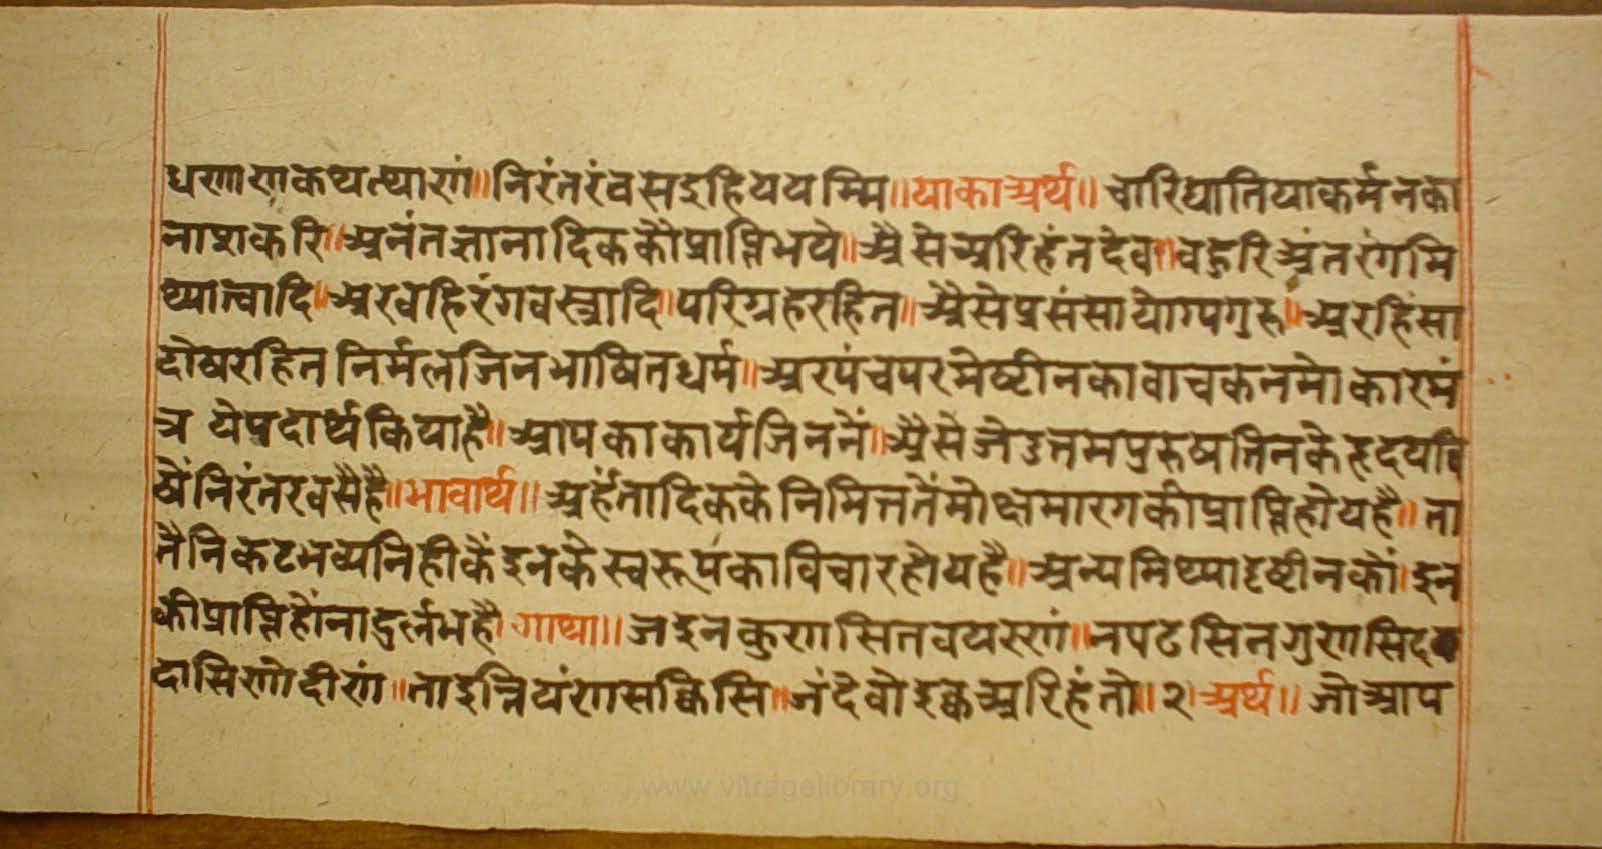 धणाणकयत्थाणं॥निरंतरंवसइहिययम्मि॥याकाअर्थ॥च्यारिघातियाकर्मनका
नाशकरि॥अनंतज्ञानादिककौप्राप्तिभये॥अैसेअरिहंतदेव॥बहुरिअंतरंगमि
थ्यात्वादि॥अरबहिरंगवस्त्रादि॥परिग्रहरहित॥अैसेप्रसंसायोग्यगुरु॥अरहिंसा
दोषरहितनिर्मलजिनभाषितधर्म॥अरपंचपरमेष्टीनकावाचकनमोकारमं
त्र येपदार्थकियाहै॥आपकाकार्यजिननें॥अैसेजेउत्तमपुरुषतिनकेहृदयवि
षेंनिरंतरवसैहै॥भावार्थ॥अर्हंतादिककेनिमित्ततेंमोक्षमारगकीप्राप्तिहोयहै॥ता
तैनिकटभव्यनिहीकैंइनकेस्वरूपकाविचारहोयहै॥अन्यमिथ्यादृष्टीनकों।इन
कीप्राप्तिहौंनादुर्लभहै।गाथा॥जइनकुणसितवयरणं॥नपढसिनगुणसिदे
दासिणोदीणं॥ताइत्तियंणसक्किसि॥जंदेवोइक्कअरिहंतो॥२।अर्थ॥जोआप
www.vitragelibrary.org